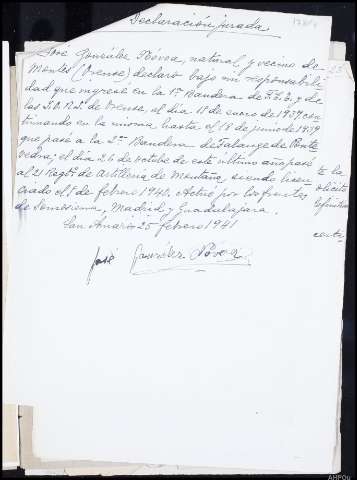 Declaración jurada
José González Nóvoa, natural y vecino de
Montes (Orense) declaro bajo mi responsabili-
dad que ingresé en la 1ª Bandera de F.E.T. y de
las J.O.N.S. de Orense, el día 18 de enero de 1937 con-
tinuando en la misma hasta el 18 de junio de 1939
que pasé a la 2ª Bandera de Falange de Ponte-
vedra; el día 26 de octubre de este último año pasé
al 21 Regtº de Artillería de Montaña, siendo licen-
ciado el 1 de febrero 1940. Actué por los frentes
de Somosierra, Madrid y Guadalajara.
San Amaro 25 febrero 1941
José González Nóvoa
te la
AHPOu